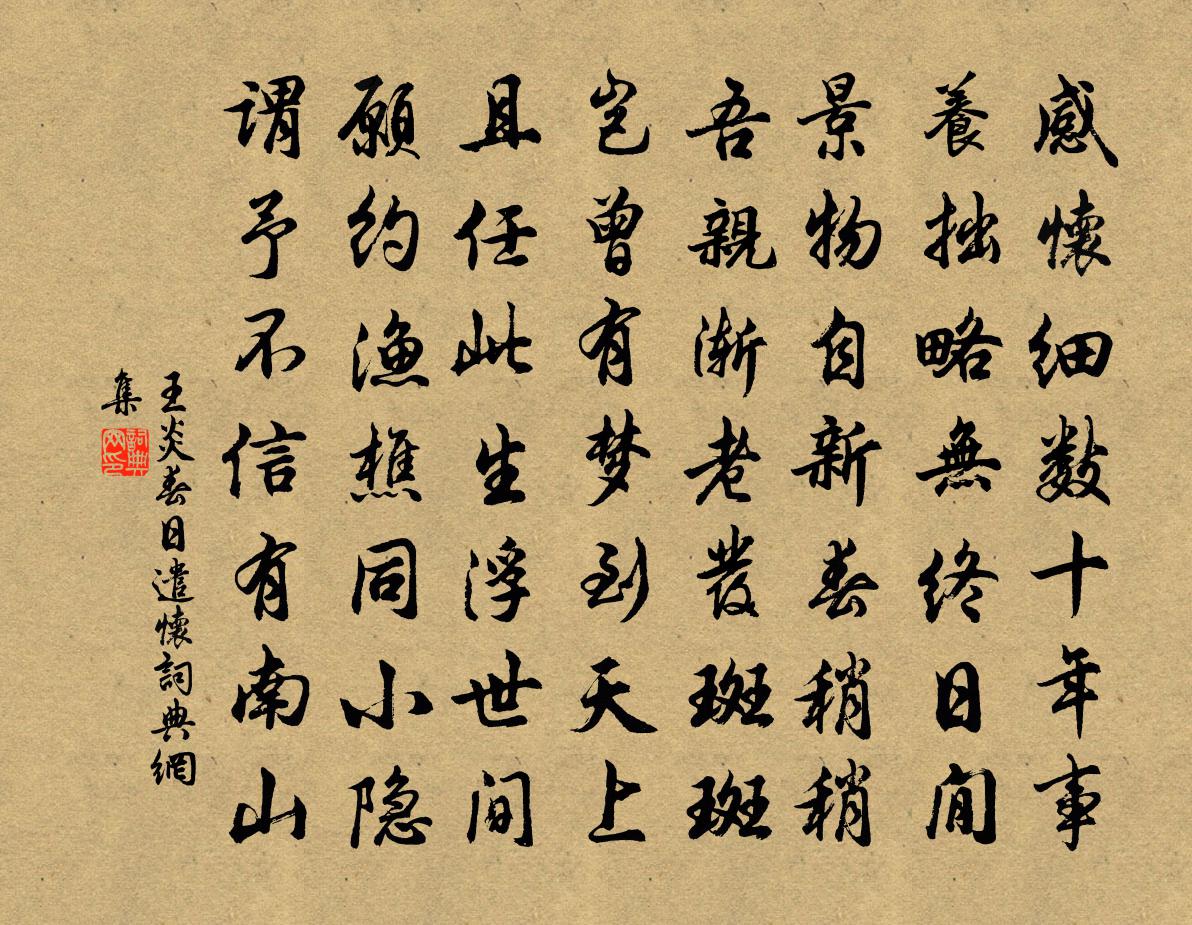 感懷細數十年事
養拙略無終日閒
景物自新春稍稍
吾親漸老發斑斑
岂曾有梦到天上
且任此生浮世間
願約漁樵同小隐
謂予不信有南山
王炎春日遣懷詞典網
集
詞典网印